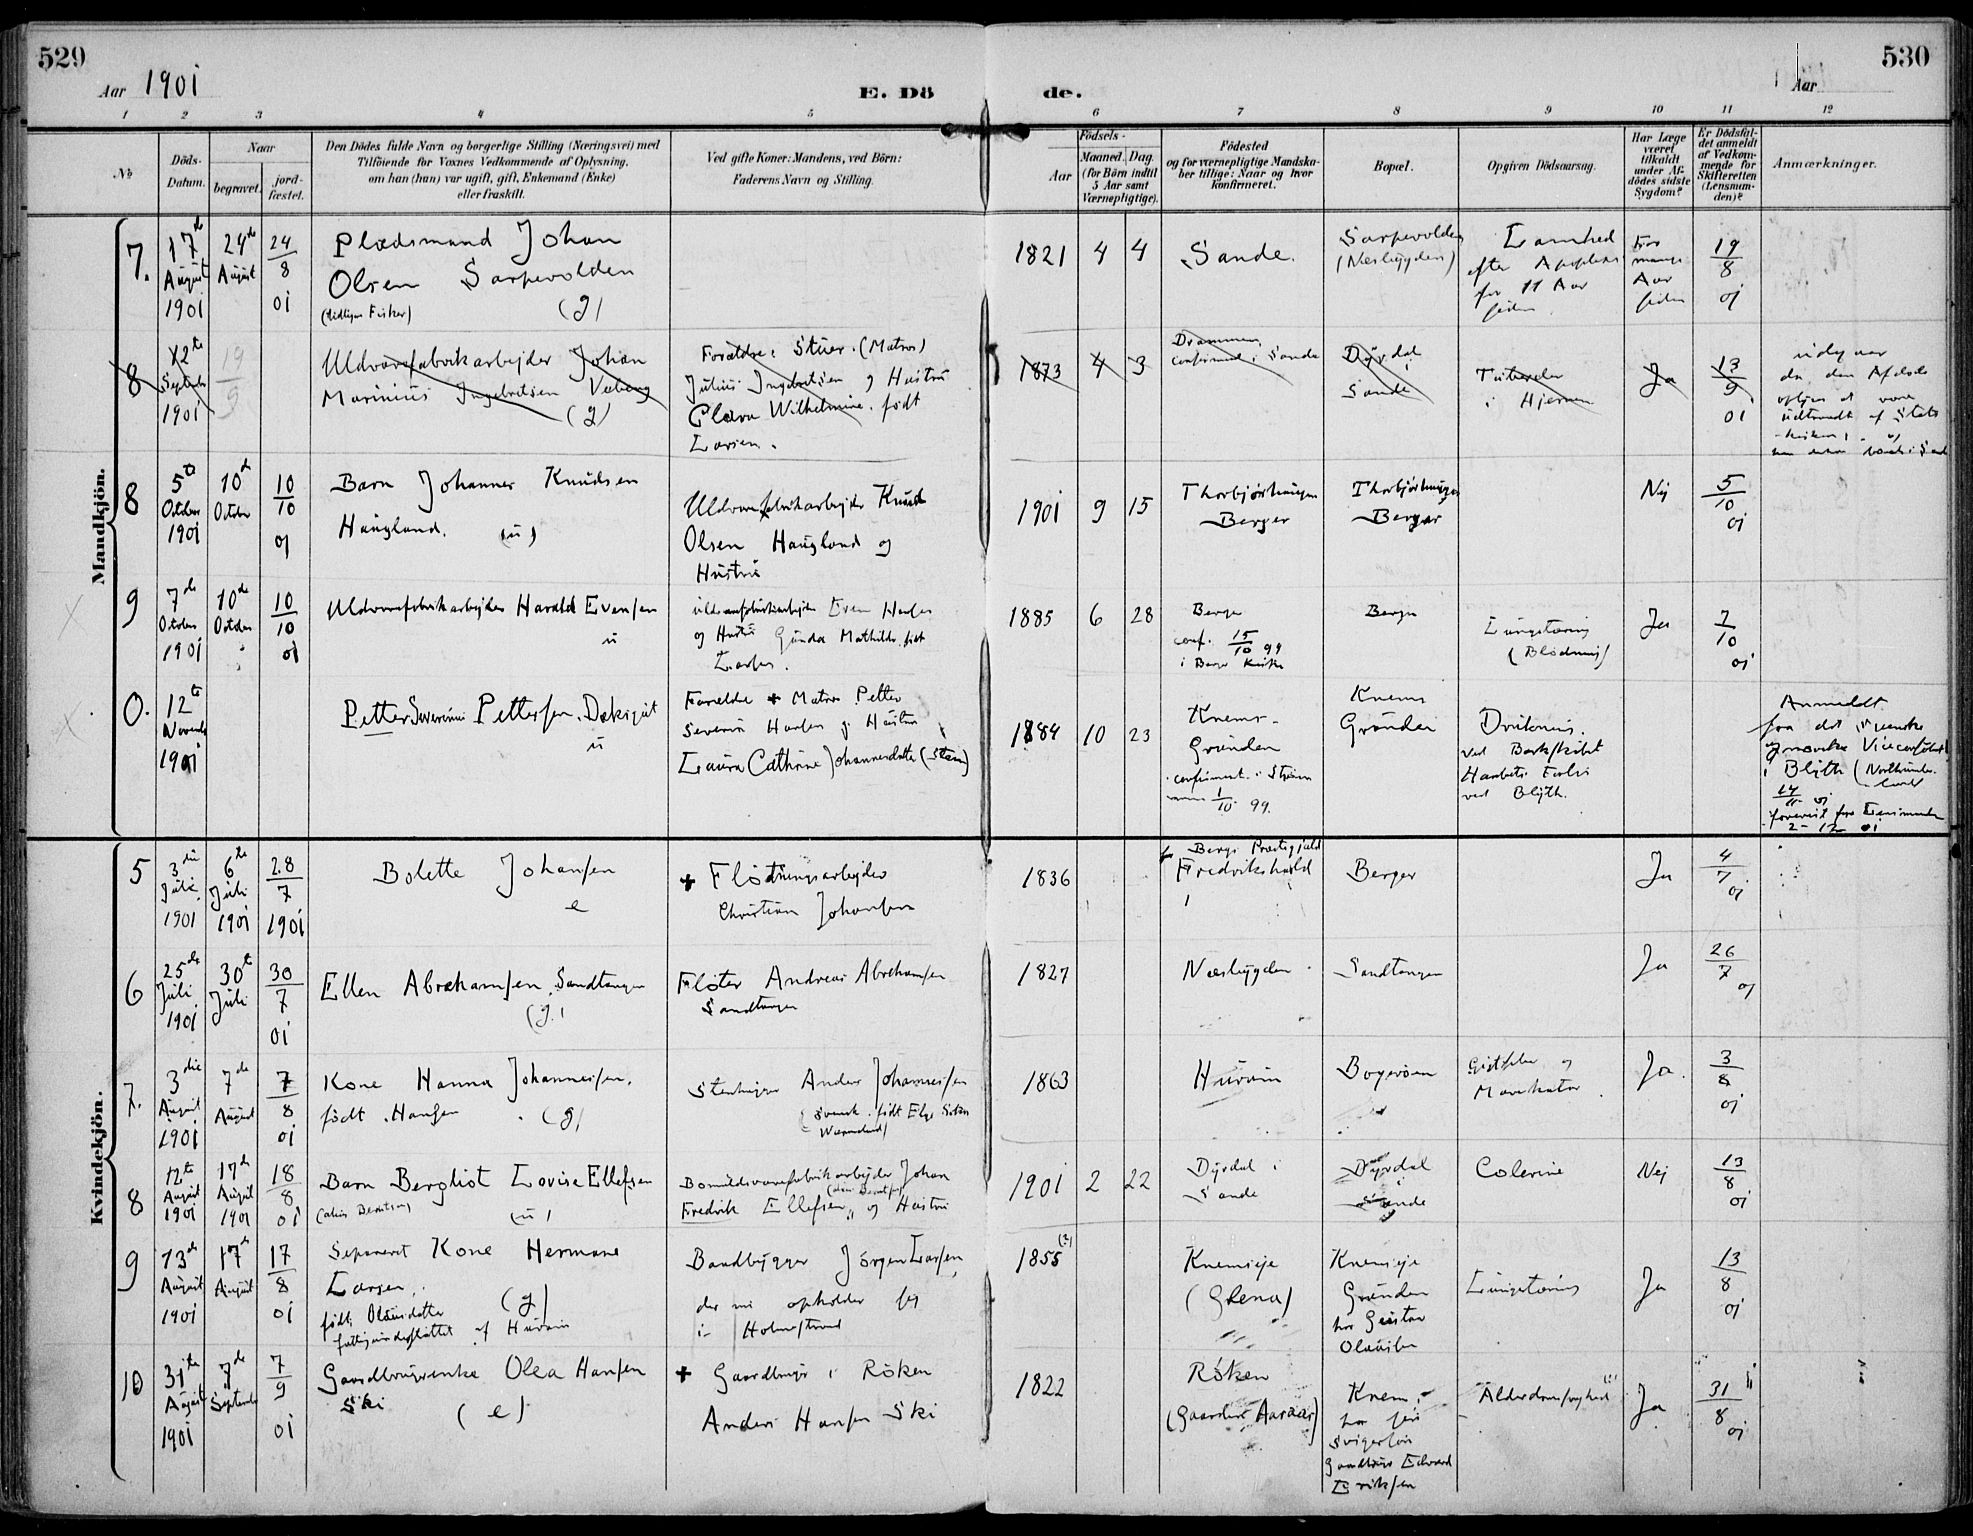 529
530
Aar 1901
E. Dö de.
Aar
1 2 3 4 5 6 7 8 9 10 11 12
No
Döds-Datum.
Naar
begravet.
jord-fæstet.
Den Dödes fulde Navn og borgerlige Stilling (Næringsvei) med
Tilföiende for Voxnes Vedkommende af Oplysning,
om han (hun) var ugift, gift, Enkemand (Enke)
eller fraskilt.
Ved gifte Koner: Mandens, ved Börn:
Faderens Navn og Stilling.
Födsels-
Aar
Maaned. Dag.
(for Börn indtil
5 Aar samt
Værnepligtige).
Födested
og for værnepligtige Mandska-
ber tillige: Naar og hvor
konfirmeret.
Bopæl.
Opgiven Dödsaarsag.
Har Læge
været
tilkaldt
under Af-
dödes sidste
Sygdom?
Er Dödsfal-
det anmeldt
af Vedkom-
mende for
Skifteretten
(Lensman-
den)?
Anmærkninger.
Mandkjön.
7.
17de August 1901
24de August
24/8 01
Pladsmand Johan
Olsen Sarpevolden
(tidligere Fisker) (g)
1821 4 4
Sande.
Sarpevolden
(Nesbygden)
Lamhed
efter
for 11 Aar
siden
for
mange
Aar
siden
19/8 01
8
12te Septbr 1901
19/9
Uldvarefabrikarbejder Johan
Marinius Ingebretsen Veberg
(g)
Forældre: Stuer. (Matros)
Julius Ingebretsen og Hustru
Clara Wilhelmine født
Larsen.
1873 4 3
Drammen
confirmert i Sande
Dyrdal
Sande
Tuberkler
i Hjernen
Ja
13/9 01
udgaar
da den Afdøde
oplyses at være
udtraadt af Stats-
kirken,
8
5te October 1901
10de October
10/10 01
Barn Johannes Knudsen
Haugland. (u)
Uldvarefabrikarbejder Knud
Olsen Haugland og
Hustru
1901 9 15
Thorbjørnhaugen
Berger
Thorbjørnhaugen
Berger
Nej
5/10 01
9
7de October 1901
10de October
10/10 01
Uldvarefabrikarbejder Harald Evensen
u
Uldvarefabrikarbejder Even
og Hustru Gunda Mathilde født
Larsen.
1885 6 28
Berger
conf. 15/10 99
i Berger Kirke
Berger
Lungetæring
(Blødning)
Ja
7/10 01
0.
12te Novemb 1901
Petter Severinus Pettersen. Dæksgut
u
Forældre + Matros Petter
Severin Hansen og Hustru
Laura Cathrine Johannesdatter (Steen)
1884 10 23
Knems-
Grunden
confirmert i
1/10 99.
Knems
Grunden
Druknes.
ved Barkskibet
ved Blyth.
Anmeldt
fra det svenske
og norske Viceconsulat
i Blyth (Northumber-
land
14/11 01
forevist for Lensmanden
2-12-01
Kvindekjön.
5
3die Juli 1901
6te Juli 1901
28/7 1901
Bolette Johansen
e
+ Flötningsarbejder
Christian Johansen
1836
f Bergs Præstegjeld
Fredrikshald
Berger
Ja
4/7 01
6
25de Juli 1901
30te Juli
30/7 01
Ellen Abrahamsen, Sandtangen
(g.)
Fløter Andreas Abrahamsen
Sandtangen
1827
Nesbygden
Sandtangen
Ja
26/7 01
7.
3die August 1901
7de August
7/8 01
Kone Hanna Johannesen,
født Hansen (g)
Stenhugger Anders Johannesen
(svensk. født
Wærmland)
1863
Hurum
Bogerøen
Gigtfeber og
Ja.
3/8 01
8
12te August 1901
17de August 1901
18/8 01
Barn Bergliot Lovise Ellefsen
(alias Berntsen) (u)
Bomuldsvarefabrikarbejder Johan
(alias Berntsen)
Fredrik Ellefsen og Hustru
1901 2 22
Dyrdal i
Sande
Dyrdal
Sande
Colerine
Nej
13/8 01
9
13de August 1901
17de August
17/8 01
Separeret Kone Hermane
Larsen,
født Olausdatter (g)
fattigunderstøttet af Hurum
Baadbygger Jörgen Larsen,
der nu opholder sig
i Holmestrand
1855 (?)
Knemseje
(Glena)
Knemseje
Grunden
hos Gustav
Olausen
Lungetæring
Ja
13/8 01
10
31te August 1901
7de September
7/9 01
Gaardbrugerenke Olea Hansen
Ski (e)
+ Gaardbruger i Röken
Anders Hansen Ski
1822
Röken
(Gaarden Aaraas)
Knem,
hos sin
Svigersøn
Gaardbruger Edvard
Eriksen
Alderdomssvaghed
Ja
31/8 01